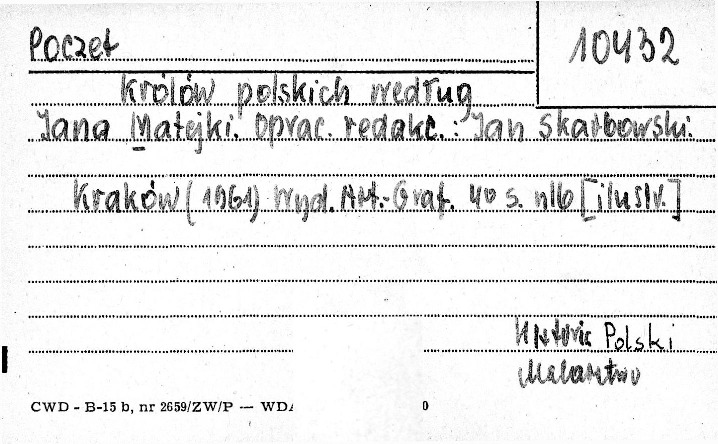 Poczet
10432
Królów polskich według
Jana Matejki. Oprac. redakc.: Jan Skarbowski.
Kraków (1961) Wyd. Art.-Graf. 40 s. nlb [ilustr.]
Historia Polski
Malarstwo
CWD - B-15 b, nr 2659/ZW/P — WDA 0